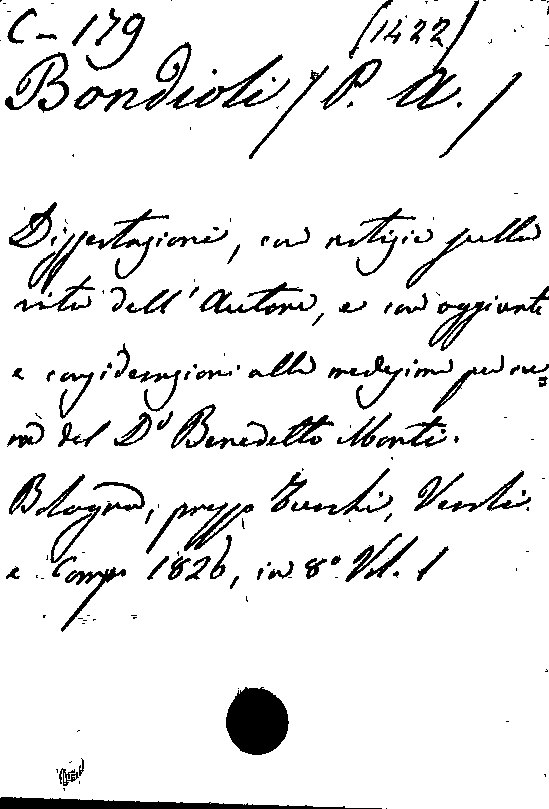 C - 179 (1422)
Bondioli (P. A.)
Dissertazioni, con notizie sulla
vita dell' Autore, e con aggiunte
e considerazioni alle medesime per cu=
ra del Dr Benedetto Monti.
Bologna, presso Turchi, Veroli
e Comp. 1826, in 8° Vol. 1